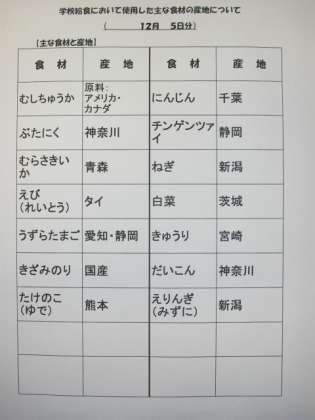 学校給食において使用した主な食材の産地について
（　　　12月　5日分）
【主な食材と産地】
食　材　産　地　食　材　産　地
むしちゅうか　原料：アメリカ・カナダ　にんじん　千葉
ぶたにく　神奈川　チンゲンツァイ　静岡
むらさきいか　青森　ねぎ　新潟
えび（れいとう）　タイ　白菜　茨城
うずらたまご　愛知・静岡　きゅうり　宮崎
きざみのり　国産　だいこん　神奈川
たけのこ（ゆで）　熊本　えりんぎ（みずに）　新潟